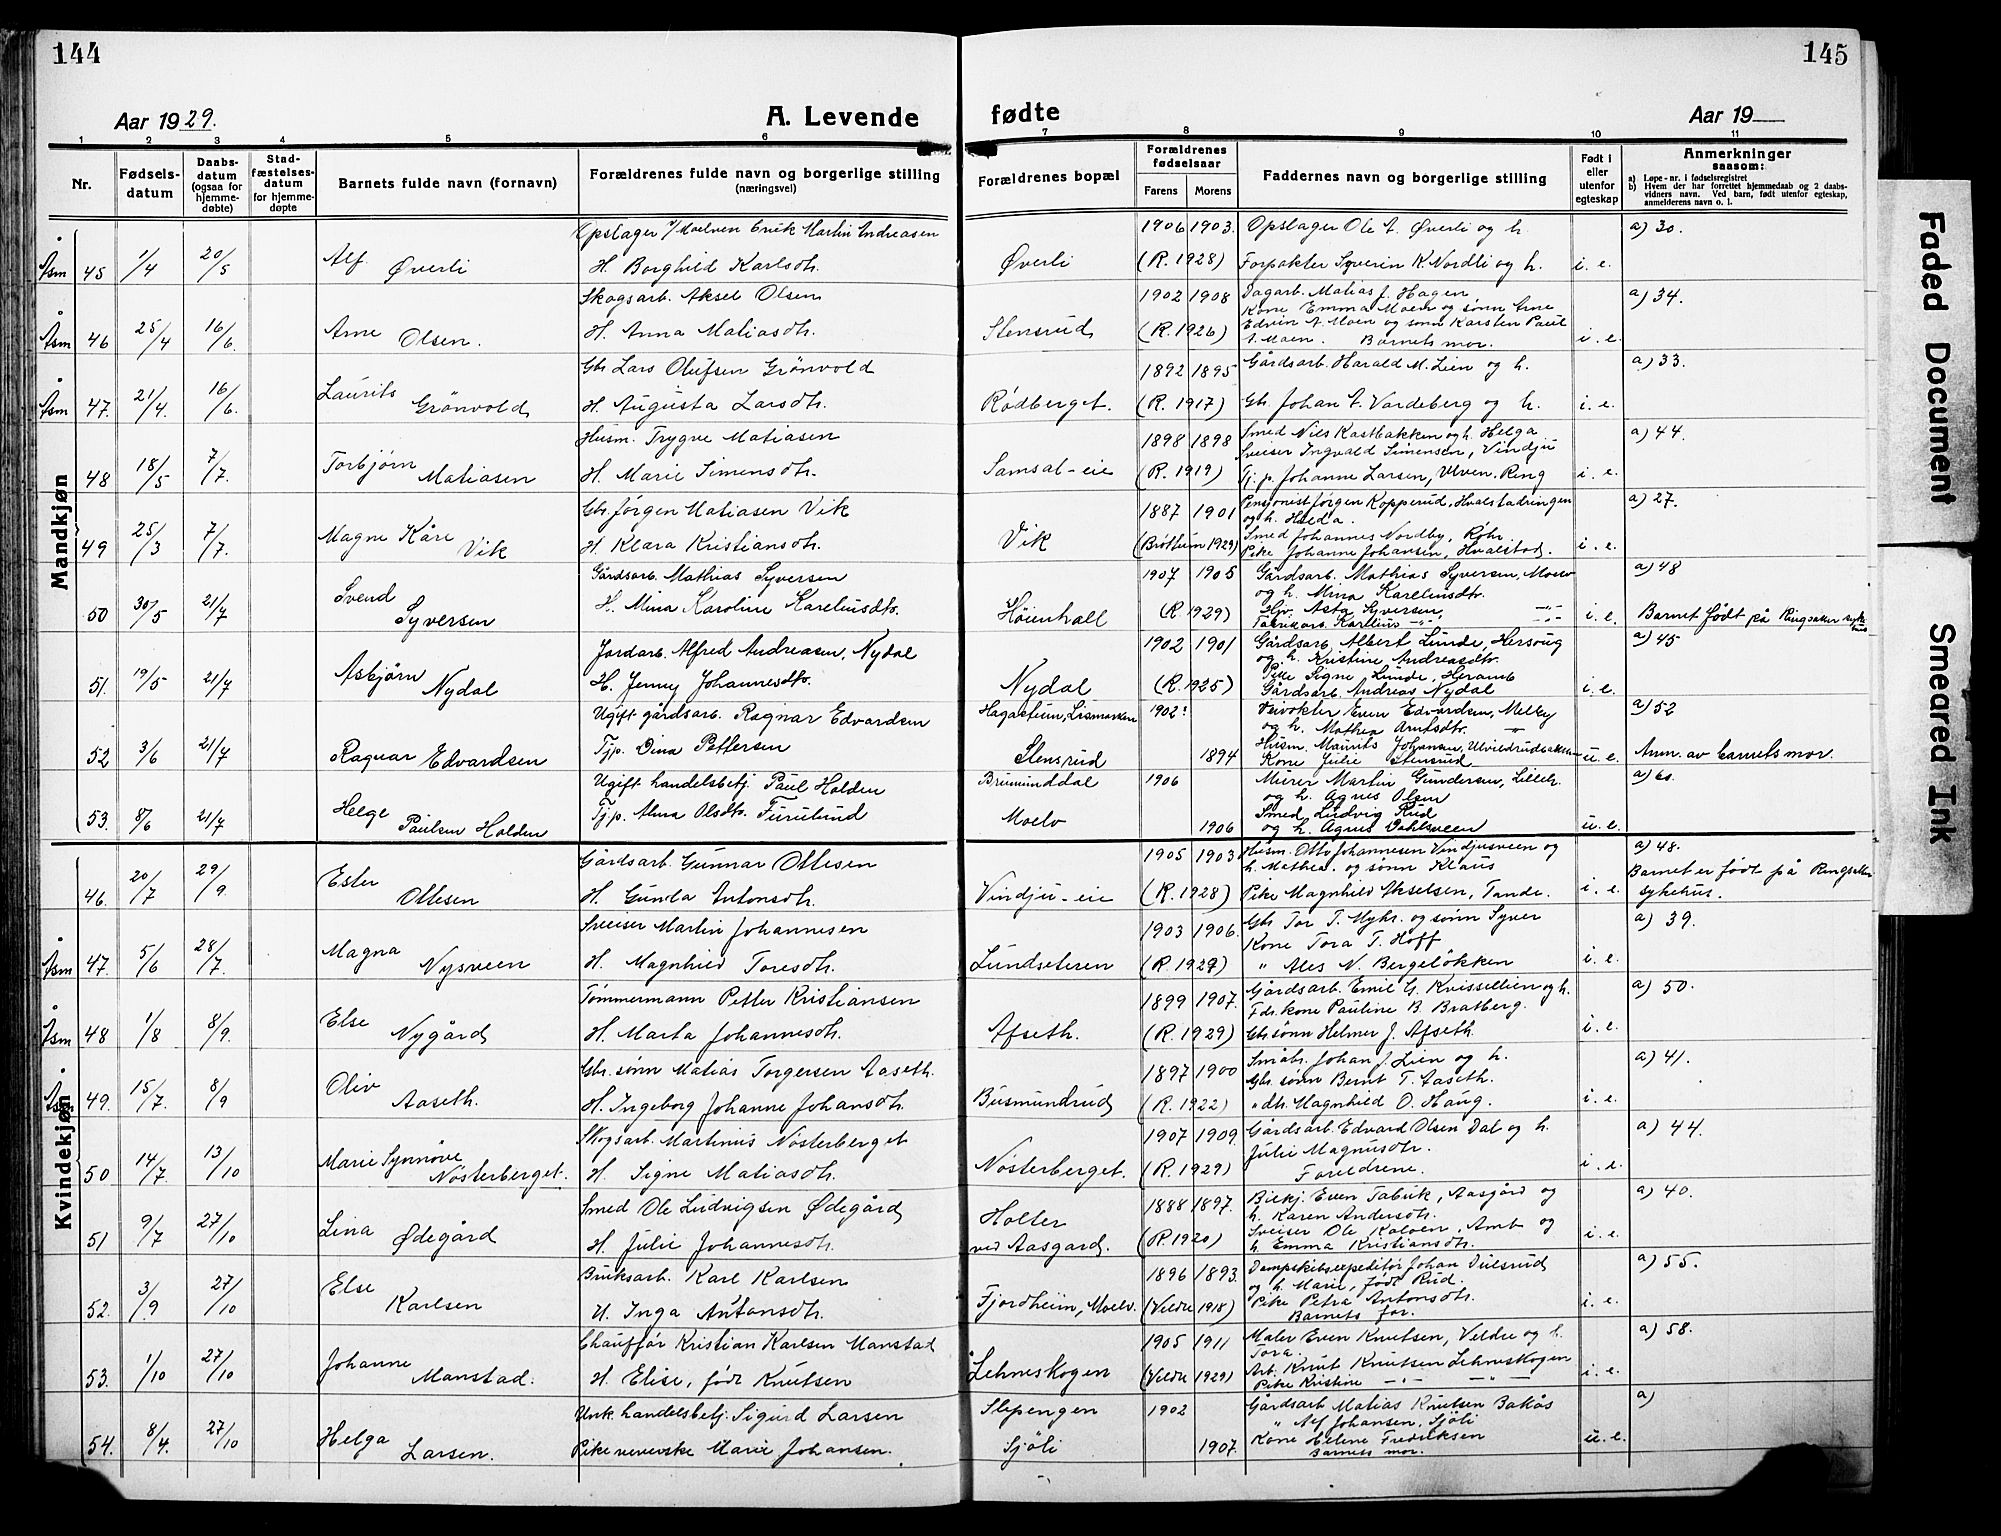 144
145
Aar 1929.
A. Levende
fødte
Aar 19
1 2 3 4 5 6 7 8 9 10 11
Nr.
Fødsels-
datum
Daabs-
datum
(ogsaa for
hjemme-
døbte)
Stad-
fæstelses-
datum
for hjemme-
døpte
Barnets fulde navn (fornavn)
Forældrenes fulde navn og borgerlige stilling
(næringsvei)
Forældrenes bopæl
Forældrenes
fødselsaar
Farens Morens
Faddernes navn og borgerlige stilling
Født i
eller
utenfor
egteskap
Anmerkninger
saasom:
a) Løpe-nr. i fødselsregistret
b) Hvem der har forrettet hjemmedaab og 2 daabs-
vidners navn. Ved barn, født utenfor egteskap,
anmelderens navn o. l.
Mandkjøn
Opslager Moelven Erik Martin Andreasen 1906 1903. Opslager Ole A. Øverli og h. a) 30.
Åsm 45 1/4 20/5 Alf Øverli H. Borghild Karlsdtr. Øverli (R. 1928) Forpakter Syverin K. Nordli og h. i. e.
Skogsarb. Aksel Olsen 1902 1908 Dagarb. Matias J. Hagen a) 34.
Kone Emma Moen og sønn Arne
Åsm 46 25/4 16/6. Arne Olsen. H. Anna Matiasdtr. Stensrud (R. 1926) Edvin A. Moen og sønn Karsten Paul
A. Moen. Barnets mor. i. e.
Gbr. Lars Olufsen Grönvold 1892 1895 Gårdsarb. Harald M. Lien og h. a) 33.
Åsm 47. 21/4. 16/6. Laurits Grönvold H. Augusta Larsdtr. Rødberget. (R. 1917) Gbr. Johan A. Vardeberg og h. i. e.
Husm. Trygve Matiasen 1898 1898 Smed Nils Kastbakken og h. Helga a) 44.
Sveiser Ingvald Simensen, Vindju
48 18/5 7/7. Torbjørn Matiasen H. Marie Simensdtr. Samsal-eie (R. 1919) Tj. p. Johanne Larsen, Ulven. Ring i. e.
Gbr. Jørgen Matiasen Vik 1887 1901 Pensjonist Jørgen Kopperud, Hvalstadringen a) 27.
og h. Hilda.
49 25/3 7/7. Magne Kåre Vik H. Klara Kristiansdtr. Vik (Brøttum 1929) Smed Johannes Nordby, Røhr.
Pike Johanne Johansen, Hvalstad. i. e.
Gårdsarb. Mathias Syversen 1907 1905 Gårdsarb. Mathias Syversen, Moelv a) 48
og h. Mina Kareliusdtr.
50 30/5 21/7 Svend Syversen H. Mina Karoline Kareliusdtr. Höienhall (R. 1929) Hjv. Asta Syversen, —"— i. e. Barnet født på Ringsaker sykehus
Fabrikarb. Karelius —"— —"—
Jordarb. Alfred Andreasen, Nydal 1902 1901 Gårdsarb. Albert Lunde, Hersoug a) 45
og h. Kristine Andreasdtr.
51. 19/5 21/7 Asbjørn Nydal H. Jenny Johannesdtr. Nydal (R. 1925) Pike Signe Lunde, Heramb
Gårdsarb. Andreas Nydal i. e.
Ugift gårdsarb. Ragnar Edvardsen Hagastuen, Lismarken 1902. Veivokter Even Edvardsen, Melby a) 52
og h. Mathea Arntsdtr.
52 3/6 21/7 Ragnar Edvardsen Tjp. Dina Pettersen Stensrud 1894 Husm. Maurits Johansen, Ulvildrudbakken
Kone Julie Stensrud u. e. Anm. av barnets mor.
Ugift handelsbetj. Paul Holden Brumunddal 1906 Murer Martin Gundersen, Lilleh. a) 60.
og h. Agnes Olsen
53. 8/6 21/7 Helge Paulsen Holden Tj. p. Alma Olsdtr. Furulund Moelv 1906 Smed Ludvig Rud
og h. Agnes Dahlsveen u. e.
Kvindekjøn
Gårdsarb. Gunnar Ottesen 1905 1903 Husm. Otto Johannesen Vindjusveen og a) 48.
h. Mathea. og sønn Klaus Barnet er født på Ringsaker
46. 20/7 29/9. Ester Ottesen H. Gunda Antonsdtr. Vindju-eie (R. 1928) Pike Magnhild Akselsen, Tande. i. e. sykehus.
Sveiser Martin Johannesen 1903 1906. Gbr. Tor T. Myhr. og sønn Syver a) 39.
Kone Tora T. Hoff
Åsm 47. 5/6 28/7. Magna Nysveen H. Magnhild Toresdtr. Lundseteren (R. 1927) " Ales N. Bergeløkken i. e.
Tømmermann Petter Kristiansen 1899 1907. Gårdsarb. Emil G. Kvissellien og h. a) 50.
Fdr. kone Pauline B. Bratberg.
Åsm 48 1/8 8/9. Else Nygård H. Marta Johannesdtr. Afseth. (R. 1929) Gbr. sønn Helmer J. Afseth. i. e.
Gbr. sønn Matias Torgersen Aaseth. 1897 1900 Småbr. Johan J. Lien og h. a) 41.
Gbr. sønn Bernt T. Aaseth.
Åsm 49. 15/7. 8/9 Oliv Aaseth. H. Ingeborg Johanne Johansdtr. Busmundrud (R. 1922) " dtr. Magnhild O. Haug. i. e.
Skogsarb. Martinus Nösterberget 1907 1909. Gårdsarb. Edvard Olsen Dal og h. a) 44.
Julie Magnusdtr.
50 14/7. 13/10 Marie Synnöve Nösterberget. H. Signe Matiasdtr. Nösterberget. (R. 1929) Foreldrene. i. e.
Smed Ole Ludvigsen Ødegård Holter 1888 1897. Birkj. Even Fabrik, Aasgård og a) 40.
h. Karen Andersdtr.
51 9/7 27/10 Lina Ødegård H. Julie Johannesdtr. ved Aasgard. (R. 1920) Sveiser Ole Kalven, Amb og
h. Emma Kristiansdtr. i. e.
Bruksarb. Karl Karlsen 1896 1893. Dampskibsexpeditør Johan Julsrud a) 55.
og h. Marie, født Rud.
52. 3/9 27/10 Else Karlsen H. Inga Antonsdtr. Fjordheim, Moelv. (Veldre 1918) Pike Petra Antonsdtr.
Barnets far. i. e.
Chauffør Kristian Karlsen Manstad 1905 1911 Maler Even Knutsen, Veldre og h. a) 58.
Tora.
53. 1/10 27/10 Johanne Manstad. H. Elise, født Knutsen Lehneskogen (Veldre 1929) Arb. Knut Knutsen Lehneskogen
Pike Kristine —"— —"— i. e.
Unk. handelsbetj. Sigurd Larsen Slepengen 1902 Gårdsarb Matias Knutsen Bakås a)
" Alf Johansen, Sjöli
54. 8/4. 27/10 Helga Larsen. Pike Marie Johansen. Sjöli 1907. Kone Helene Fredriksen
Barnets mor. u. e.
Faded Document
Smeared Ink